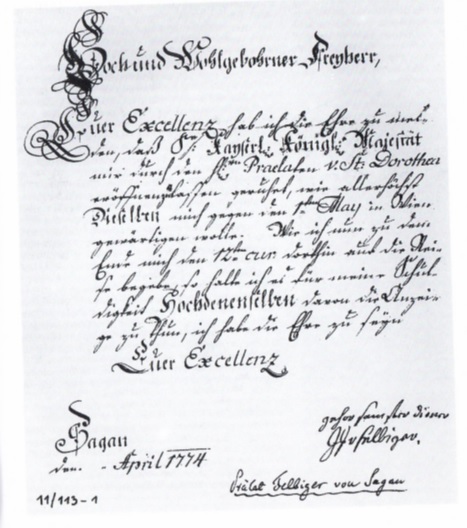 Hoch und Wohlgebohrner Freyherr,
Euer Excellenz hab ich die Ehre zu mel-
den, daß Se. Kayserl. Königl. Majestät
mir durch den Hrn. Praelaten v. St. Dorothea
eröffnen zu lassen geruhet, wie allerhöchst
Dieselben mich gegen den 1ten May in Wien
gewärtigen wolle. Wie ich nun zu dem
Ende mich den 12te cur. dorthin auf die Rei-
se begebe, so halte ich es für meine Schul-
digkeit Hochdenenselben davon die Anzei-
ge zu thun, ich habe die Ehre zu seyn
Euer Excellenz
gehorsamster diener
vFelbiger.
Sagan
den. - April 1774
Prälat Felbiger von Sagan
11/113-1